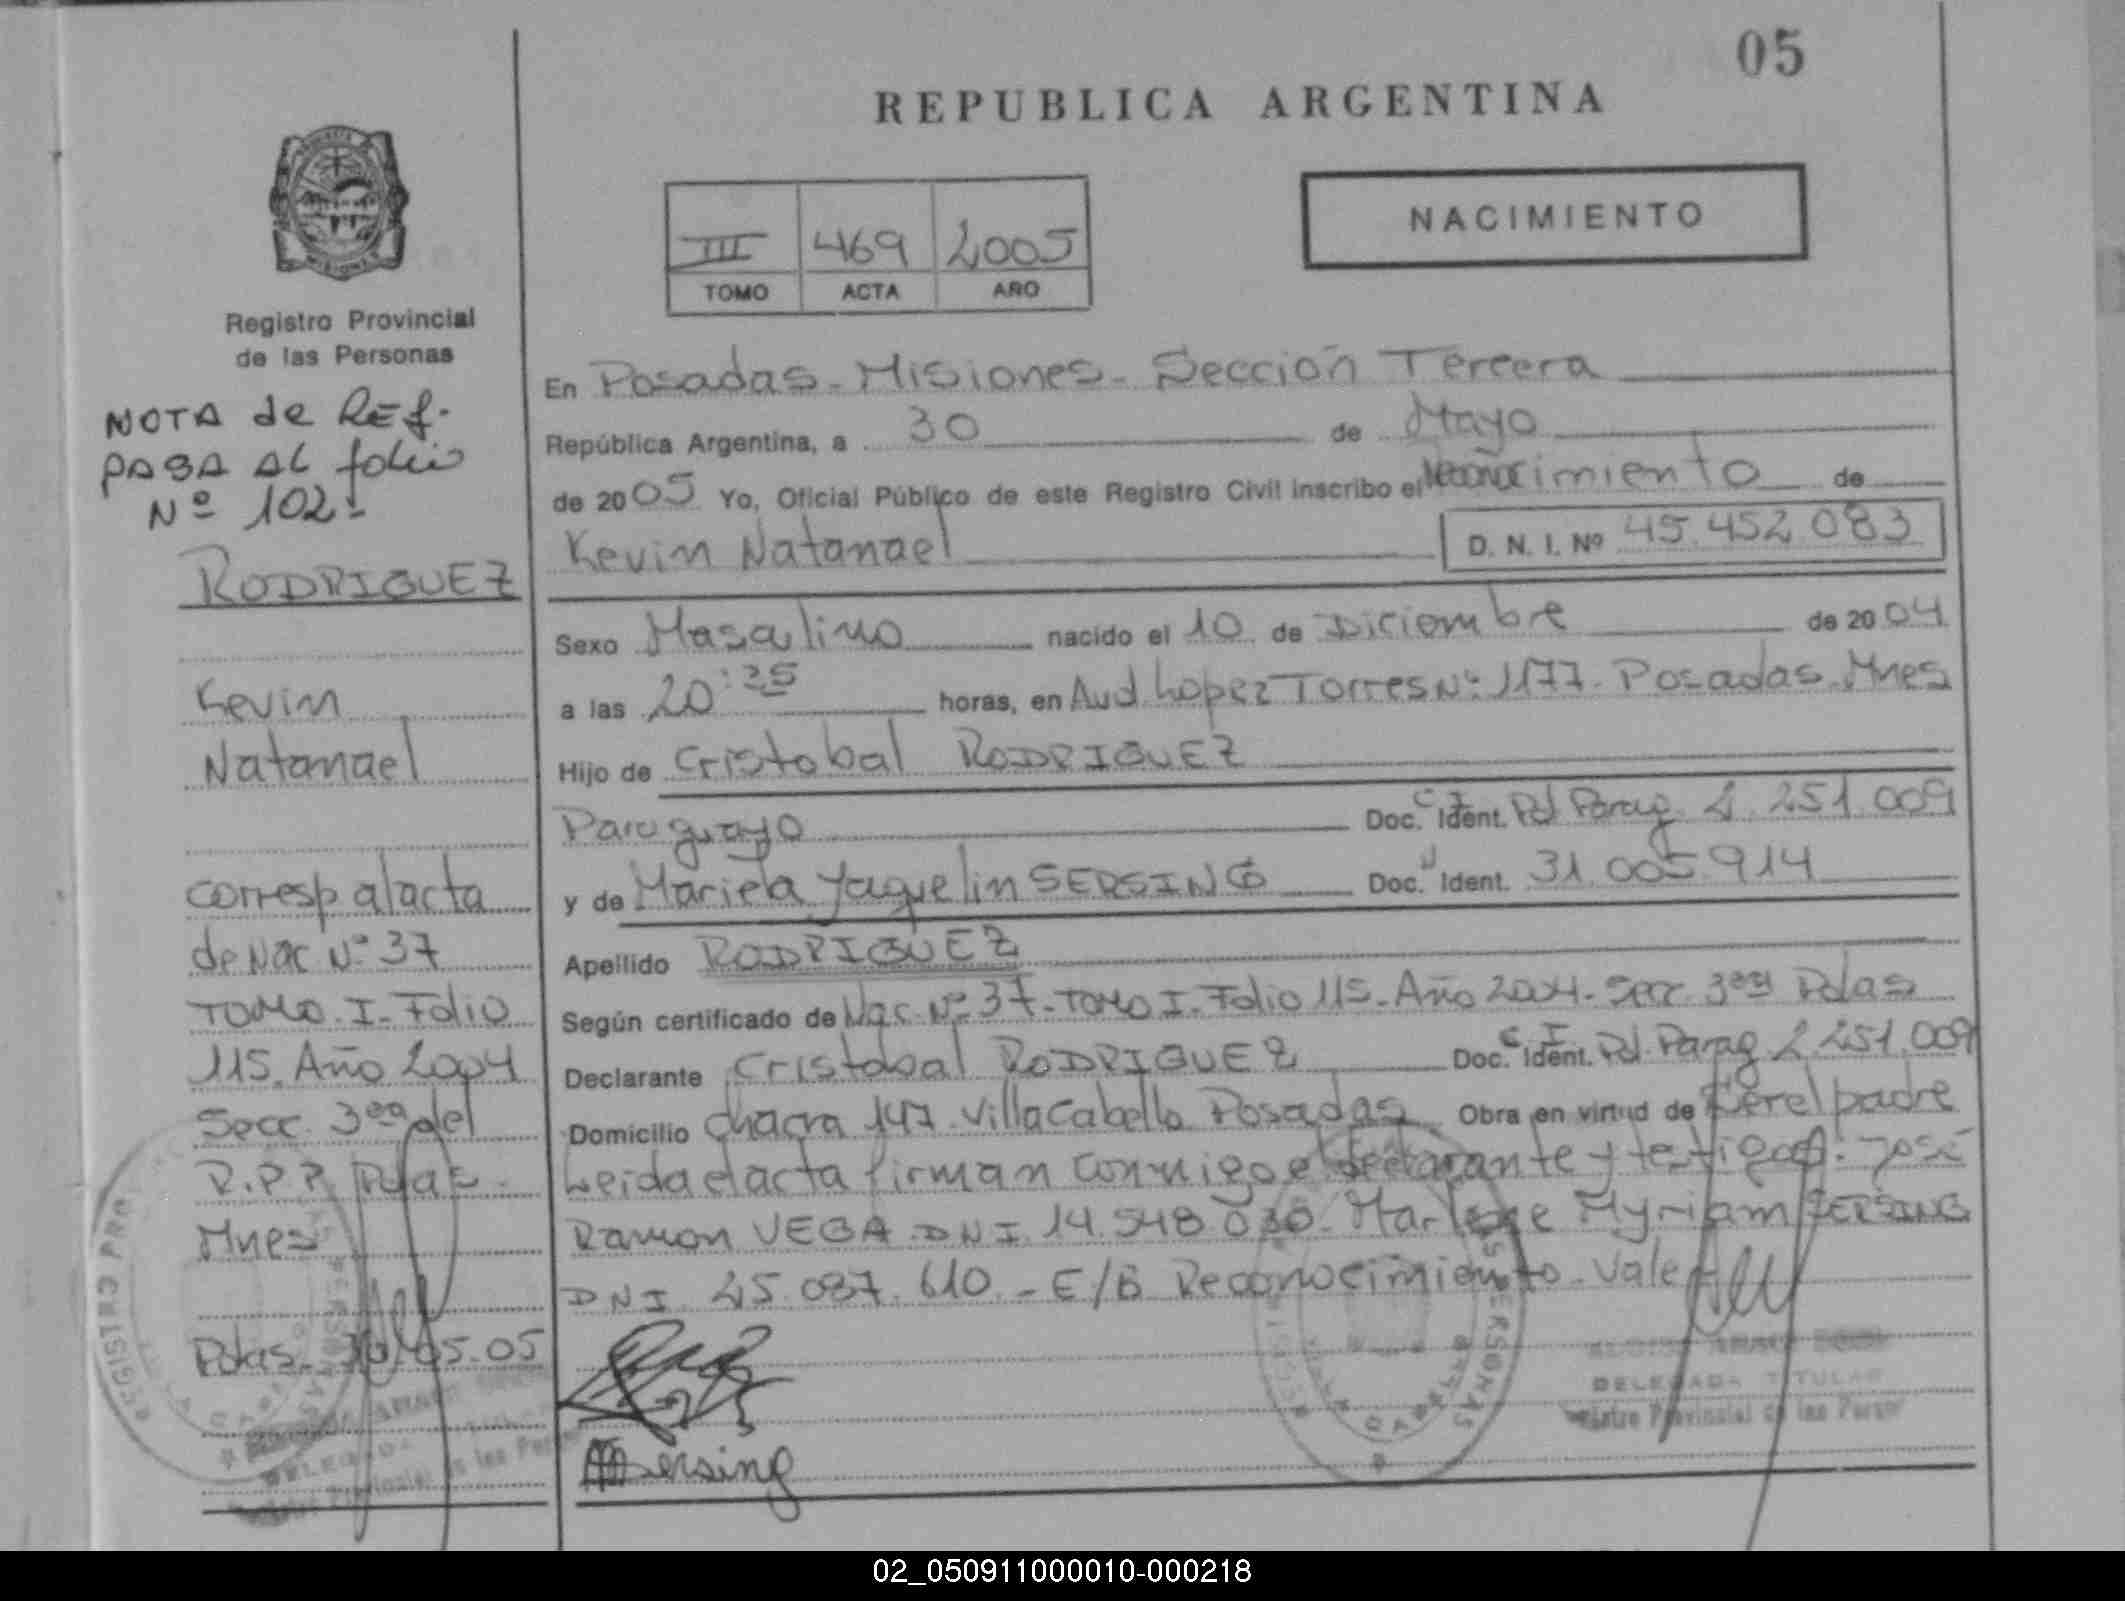 05
REPUBLICA ARGENTINA
NACIMIENTO
III 469 2005
TOMO ACTA AÑO
Registro Provincial
de las Personas
NOTA de REf.
PASA AL folio
Nº 102
RODRIGUEZ
Kevin
Natanael
corresp al acta
de Nac Nº 37
TOMO. I. Folio
115. Año 2004
Secc. 3era del
R.P.P. Pdas.
Mnes
Pdas. 30.05.05
En Posadas - Misiones - Sección Tercera
República Argentina, a 30 de Mayo
de 2005 Yo, Oficial Público de este Registro Civil inscribo el de
Kevin Natanael D. N. I. Nº 45.452.083
Sexo Masculino nacido el 10 de Diciembre de 2004
a las 20:25 horas, en Avd. Lopez Torres Nº 1177. Posadas. Mnes
Hijo de Cristobal RODRIGUEZ
Paraguayo Doc. C.I. Ident. Pol Parag. 2.251.009
y de Mariela Jaquelin SERSING Doc. Ident. 31.005.914
Apellido RODRIGUEZ
Según certificado de Nac. Nº 37. TOMO I. Folio 115. Año 2004. Secc. 3era Pdas
Declarante Cristobal RODRIGUEZ Doc. C.I. Ident. Pol. Parag 2.251.009
Domicilio Chacra 147. Villa Cabello Posadas Obra en virtud de ser el padre
Leida el acta firman conmigo el declarante y testigos: José
Ramon VEGA DNI 14.548.030. Marlene Myriam SERSING
DNI 25.087.610. - E/B Reconocimiento. Vale
Sersing
DELEGADA TITULAR
Registro Provincial de las Person
DELEGADA
Provincial de las Per
02_050911000010-000218